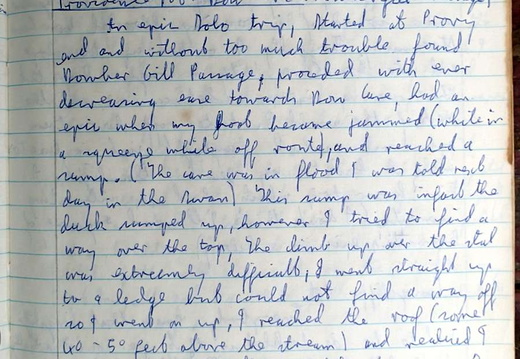 Providence
An epic Solo trip, started at Provy
end and without too much trouble found
Bowther Gill Passage, proceded with ever
decreasing ease towards Dow Cave, had an
epic when my foot became jammed (while in
a squeeze while off route, and reached a
sump. (The cave was in flood I was told next
day in the Swan) This sump was infact the
duck sumped up, however I tried to find a
way over the top, The climb up over the stal
was extremely difficult, I went straight up
to a ledge but could not find a way off
so I went on up, I reached the roof (some
40 - 50 feet above the stream) and realised I